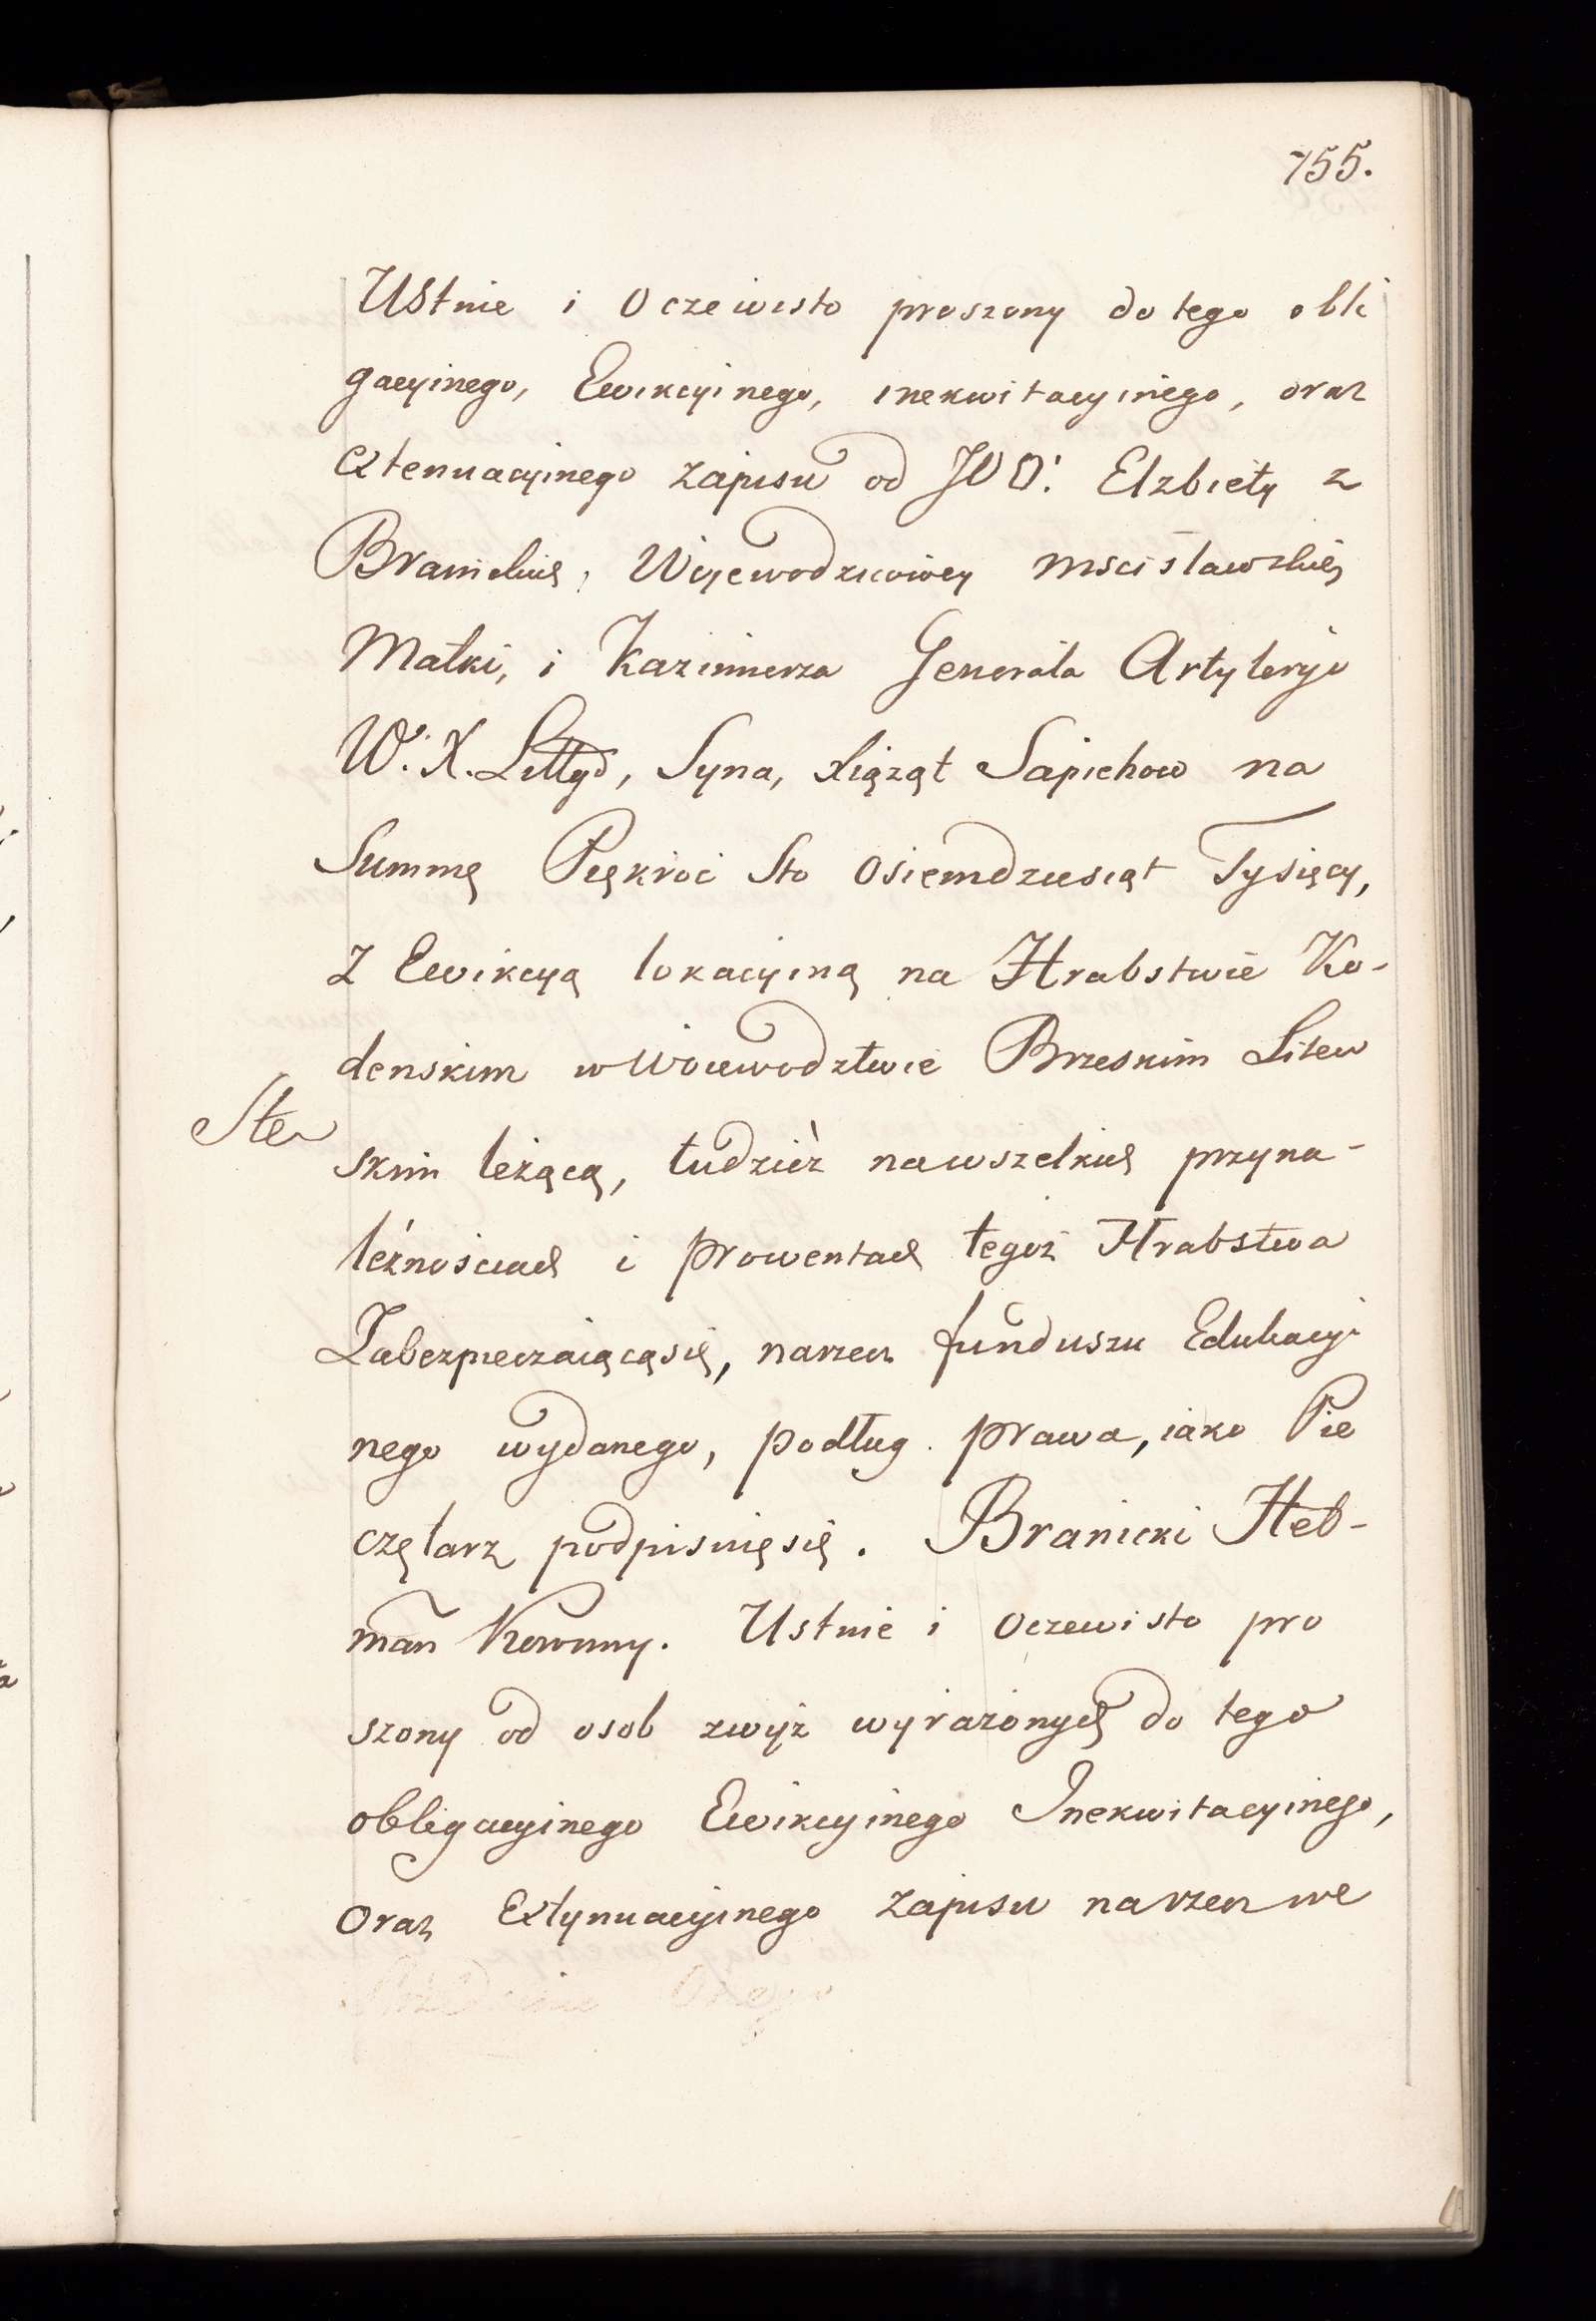 755.
Ustnie i Oczewisto proszony do tego obli
gacyinego, Ewikcyinego, inekwitacyinego, oraz
extenuacyinego Zapisu od JOO: Elzbiety z
Branickich, Wojewodzicowey Mscisławskiey
Matki, i Kazimierza Generała Artyleryi
W. X. Littgo, Syna, Xiążąt Sapiehow na
Summę Piękroć Sto Osiemdziesiąt Tysięcy,
z Ewikcyą lokacyiną na Hrabstwie Ko-
denskim w Wojewodztwie Brzeskim Litew
Ste
skim leżącą, tudzież na wszelkich przyna-
leżnościach i prowentach tegoż Hrabstwa
Zabezpieczaiącą się, na rzecz funduszu Edukacyi
nego wydanego, podług prawa, iako Pie
czętarz podpisuię się. Branicki Het-
man Koronny. Ustnie i Oczewisto pro
szony od osob zwyż wyrażonych do tego
obligacyinego Ewikcyinego Inekwitacyinego,
Oraz Extynuacyinego Zapisu na rzecz we